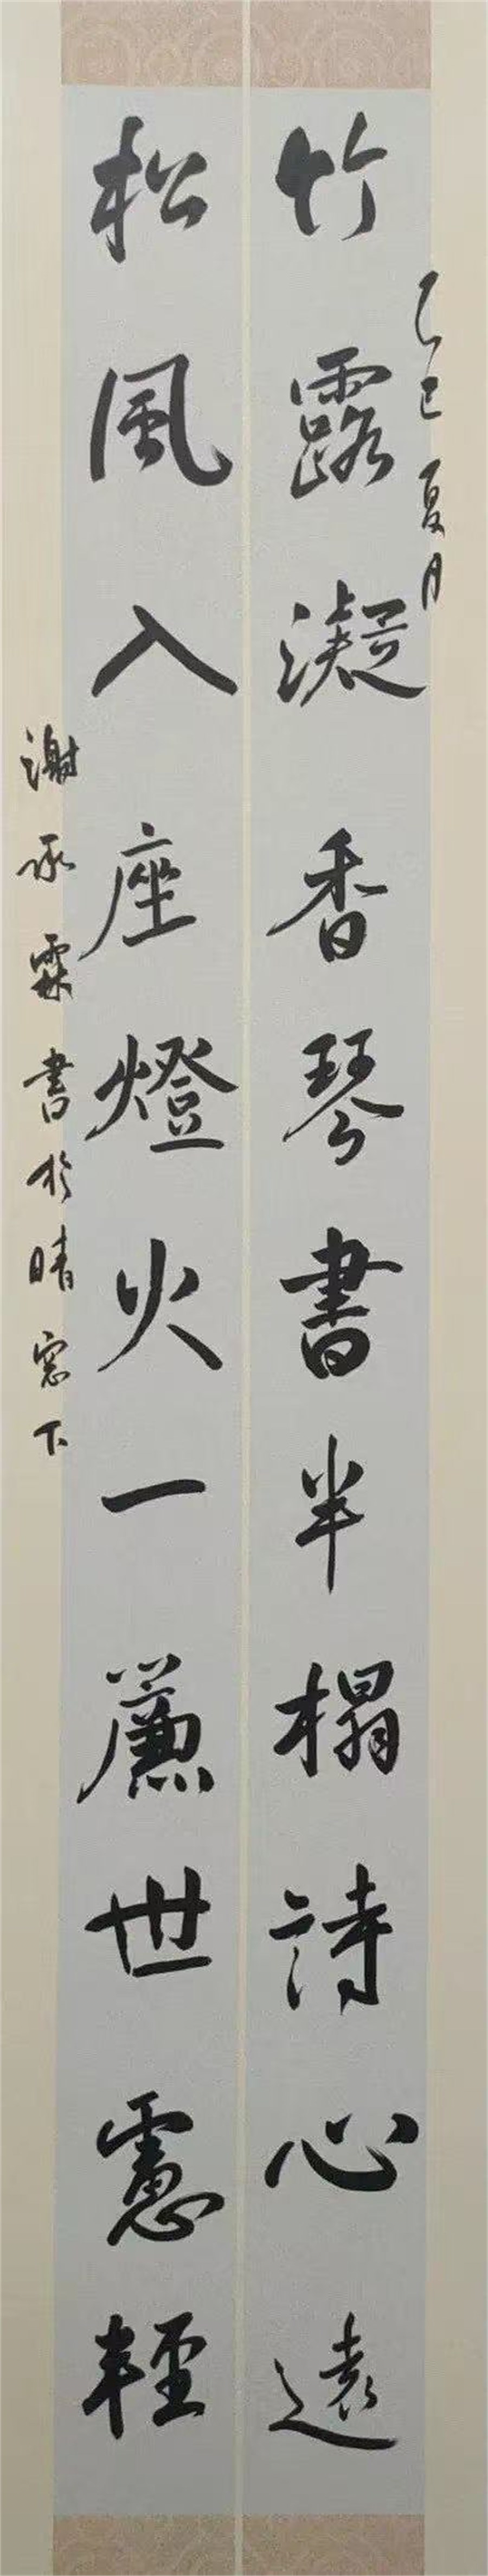 乙巳夏月
竹露凝香琴書半榻詩心遠
松風入座燈火一簾世慮輕
謝承霖書於晴窓下